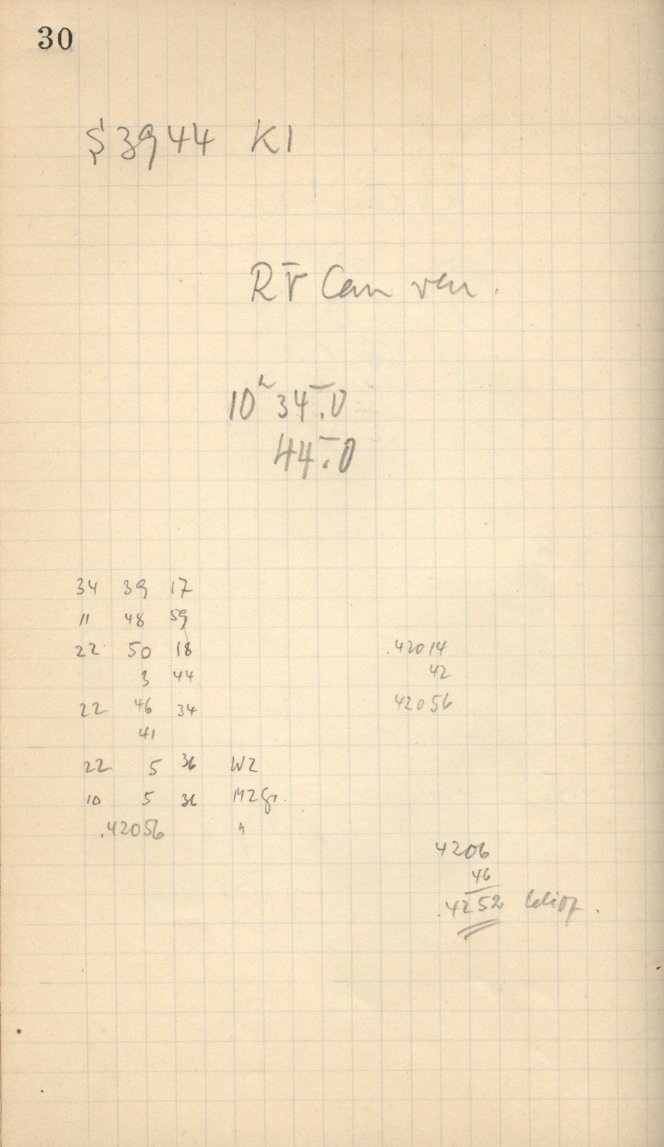 30
S 3944 K1
RV Can ven.
10ʰ 34.0
44.0
34 39 17
11 48 59
22 50 18
3 44
22 46 34
41
22 5 36 WZ
10 5 36 MZGr.
.42056 "
.42014
42
42056
4206
46
.4252 helioz.